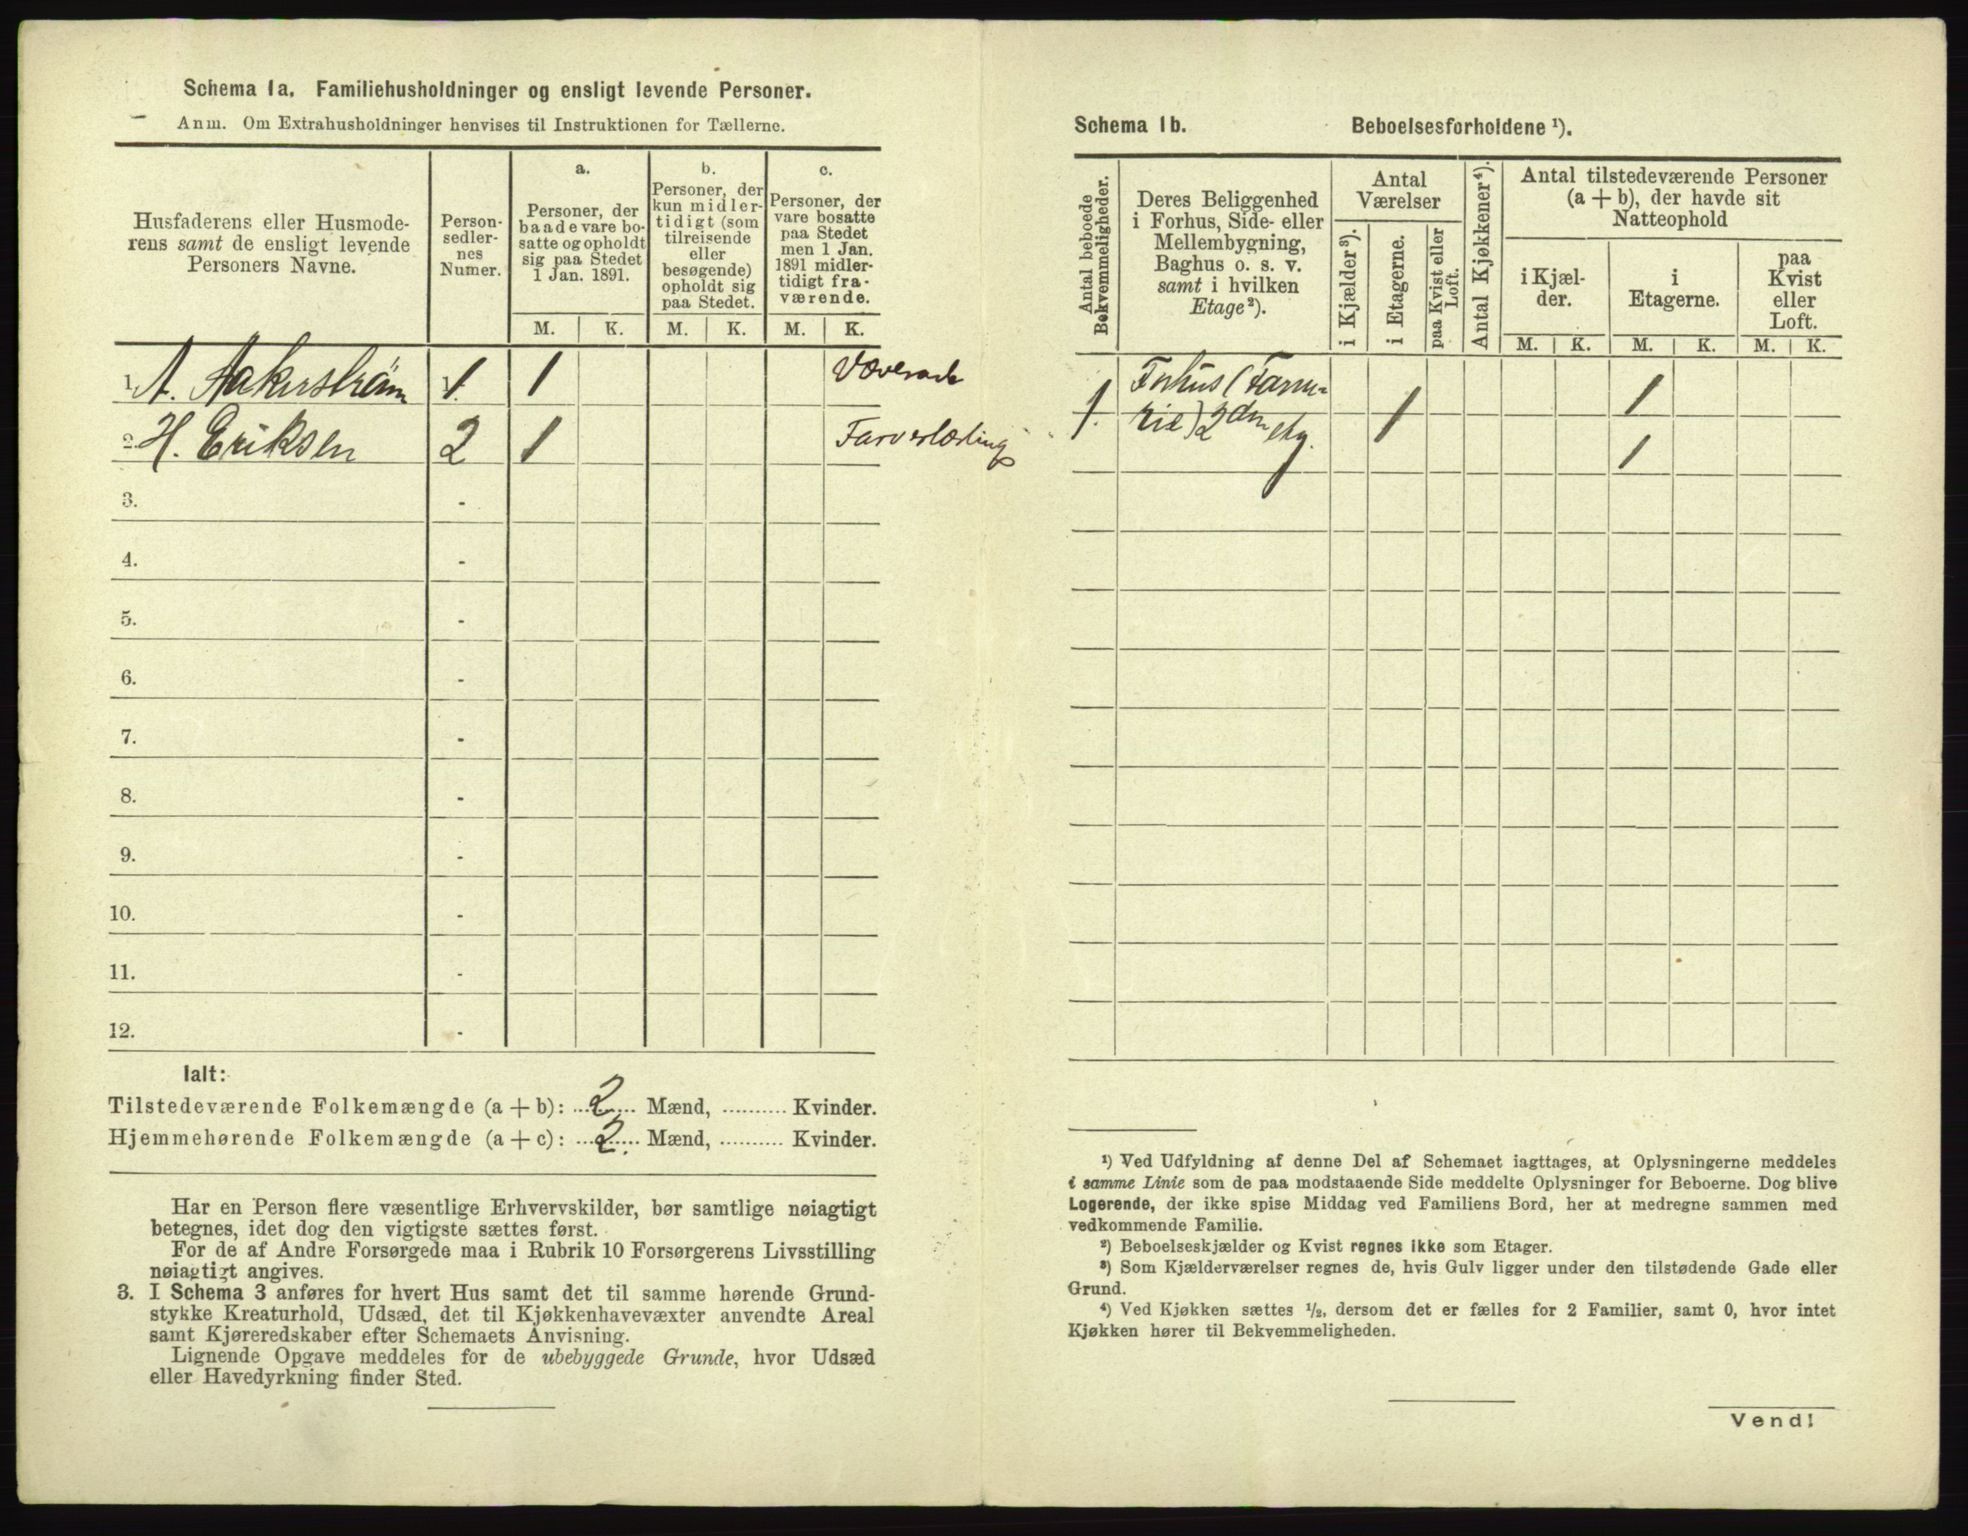 Schema 1a. Familiehusholdninger og ensligt levende Personer.
Anm. Om Extrahusholdninger henvises til Instruktionen for Tællerne.
Husfaderens eller Husmode-
rens samt de ensligt levende
Personers Navne.
Person-
sedler-
nes
Numer.
a.
Personer, der
baade vare bo-
satte og opholdt
sig paa Stedet
1 Jan. 1891.
b.
Personer, der
kun midler-
tidigt (som
tilreisende
eller
besøgende)
opholdt sig
paa Stedet.
c.
Personer, der
vare bosatte
paa Stedet
men 1 Jan.
1891 midler-
tidigt fra-
værende.
M. K. M. K. M. K.
1. A. Aakerstrøm 1 1
2. H. Eriksen 2 1
3. -
4. -
5. -
6. -
7. -
8. -
9. -
10. -
11. -
12. -
Ialt:
Tilstedeværende Folkemængde (a + b): 2 Mænd, .......... Kvinder.
Hjemmehørende Folkemængde (a + c): 2. Mænd, .......... Kvinder.
Har en Person flere væsentlige Erhvervskilder, bør samtlige nøiagtigt
betegnes, idet dog den vigtigste sættes først.
For de af Andre Forsørgede maa i Rubrik 10 Forsørgerens Livsstilling
nøiagtigt angives.
3. I Schema 3 anføres for hvert Hus samt det til samme hørende Grund-
stykke Kreaturhold, Udsæd, det til Kjøkkenhavevæxter anvendte Areal
samt Kjøreredskaber efter Schemaets Anvisning.
Lignende Opgave meddeles for de ubebyggede Grunde, hvor Udsæd
eller Havedyrkning finder Sted.
Schema 1b. Beboelsesforholdene ¹).
Antal beboede
Bekvemmeligheder.
Deres Beliggenhed
i Forhus, Side- eller
Mellembygning,
Baghus o. s. v.
samt i hvilken
Etage²).
Antal
Værelser
i Kjælder³).
i Etagerne.
paa Kvist eller
Loft.
Antal Kjøkkener⁴).
Antal tilstedeværende Personer
(a + b), der havde sit
Natteophold
i Kjæl-
der.
i
Etagerne.
paa
Kvist
eller
Loft.
M. K. M. K. M. K.
1. Forhus 1 1
2den etg. 1
¹) Ved Udfyldning af denne Del af Schemaet iagttages, at Oplysningerne meddeles
i samme Linie som de paa modstaaende Side meddelte Oplysninger for Beboerne. Dog blive
Logerende, der ikke spise Middag ved Familiens Bord, her at medregne sammen med
vedkommende Familie.
²) Beboelseskjælder og Kvist regnes ikke som Etager.
³) Som Kjælderværelser regnes de, hvis Gulv ligger under den tilstødende Gade eller
Grund.
⁴) Ved Kjøkken sættes ½, dersom det er fælles for 2 Familier, samt 0, hvor intet
Kjøkken hører til Bekvemmeligheden.
Vend!